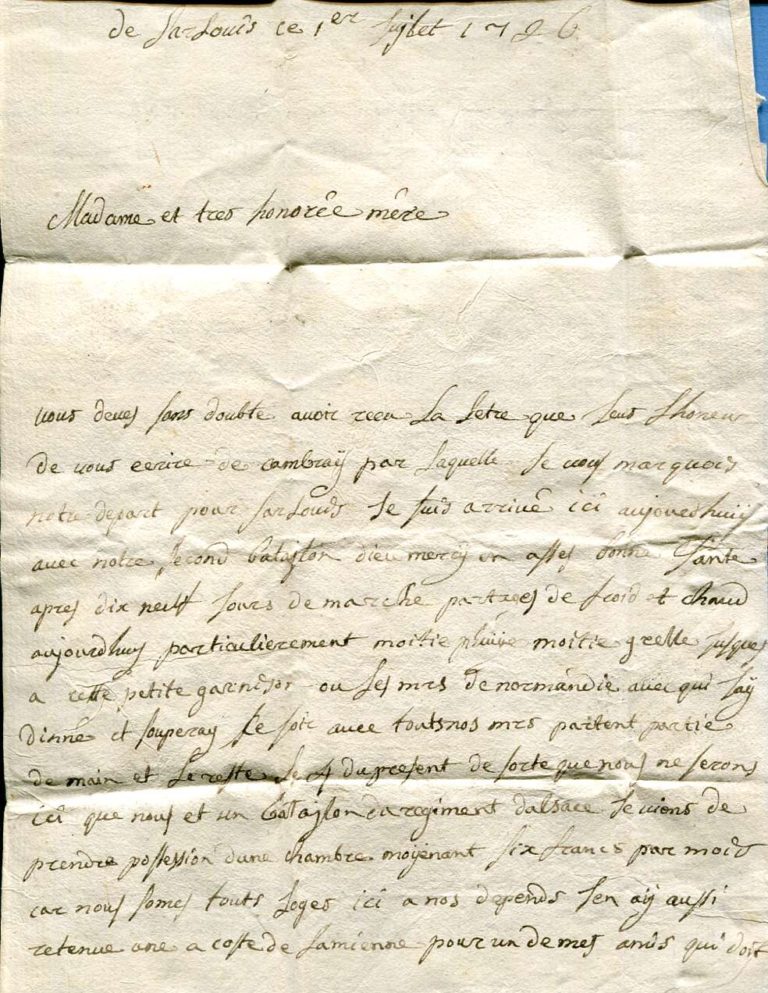 de sarLouis ce 1er Jujlet 1726
Madame et tres honorée mére
vous deves sans doubte avoir receu La Letre que Jeus Lhoneur
de vous ecrire de cambraÿ par Laquelle Je vous marquois
notre depart pour sarLouis Je suis arrivé ici aujourdhuij
avec notre second batajlon dieu mercÿ en asses bonne sante
apres dix neuf Jours de marche partaees de froid et chaud
aujourdhuy particulierement moitie pluije moitie grelle jusques
a cette petite garnison ou Les mrs de normandie avec qui Jaÿ
dinné et souperay ce soir avec touts nos mrs partent partie
demain et Le reste Le 4 du present de sorte que nous ne serons
ici que nous et un batajlon du regiment dalsace Je viens de
prendre possession dune chambre moÿenant six francs par mois
car nous somes touts Loges ici a nos depends Jen aÿ aussi
retenue une a coste de La mienne pour un de mes amis qui doit